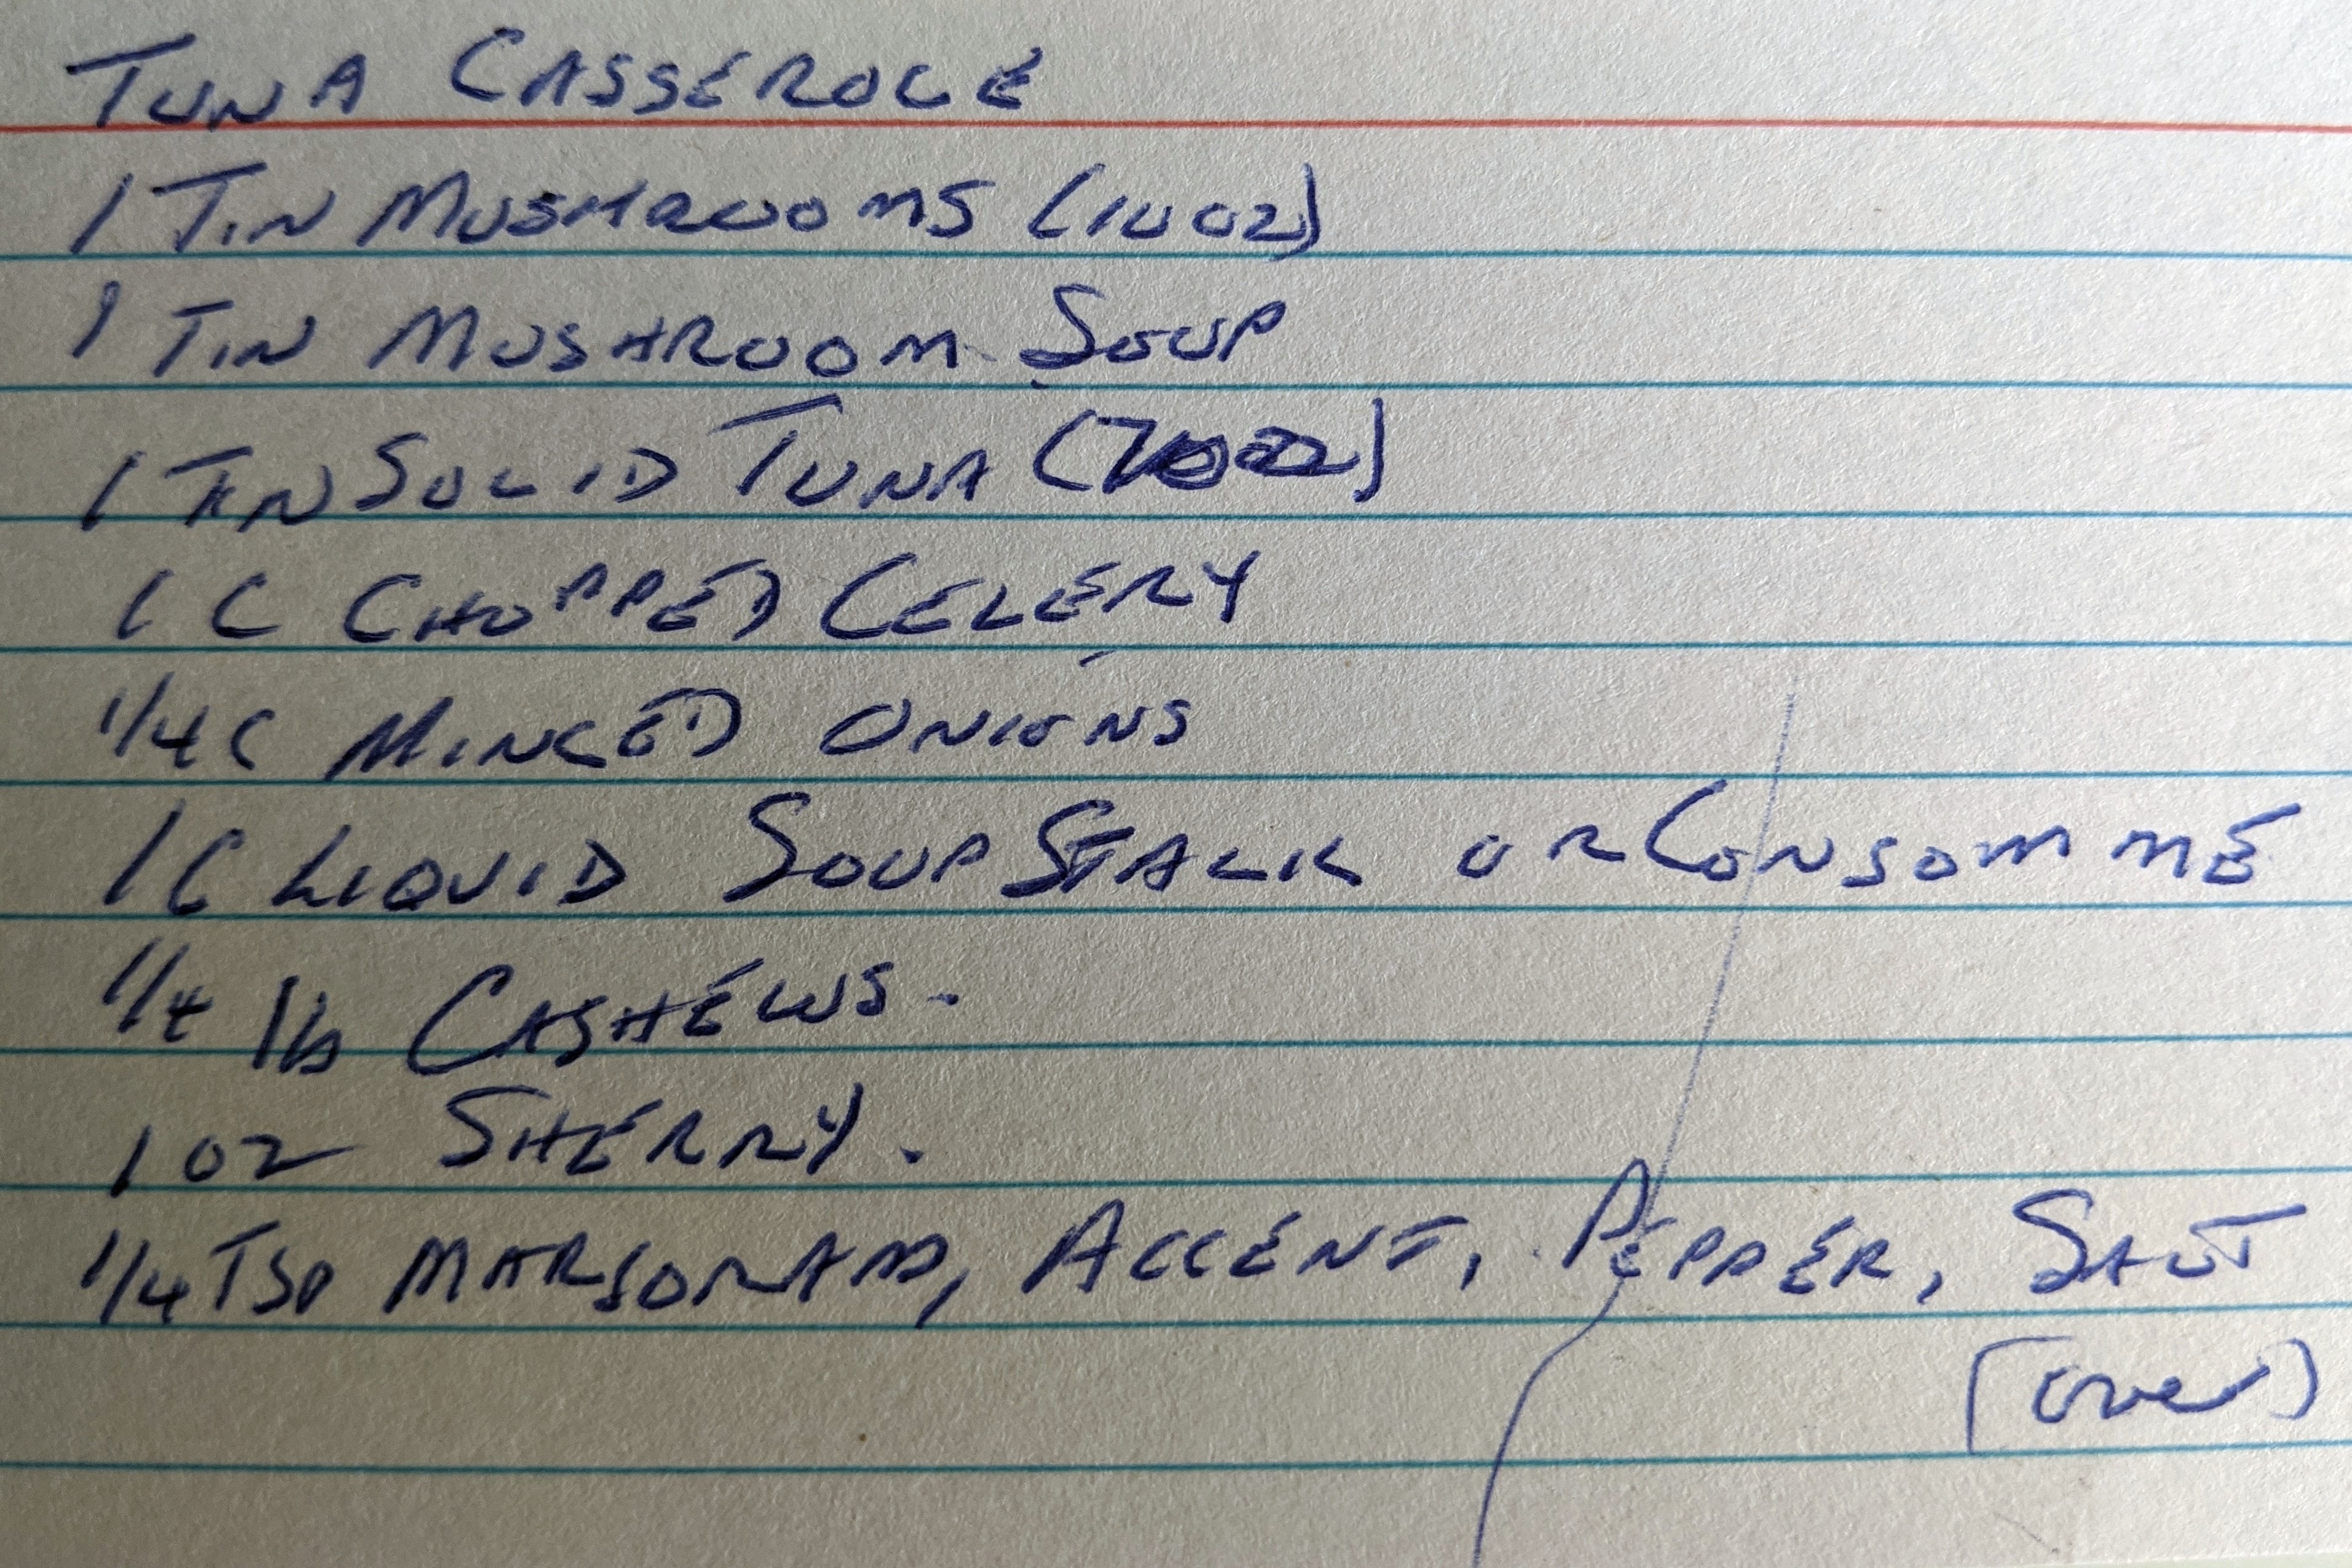 TUNA CASSEROLE
1 TIN MUSHROOMS (10 OZ)
1 TIN MUSHROOM SOUP
1 TIN SOLID TUNA (7 OZ)
1 C CHOPPED CELERY
1/4 C MINCED ONIONS
1 C LIQUID SOUP STALK OR CONSOMME
1/4 lb CASHEWS.
1 OZ SHERRY.
1/4 TSP MARSORAM, ACCENT, PEPPER, SALT
(over)